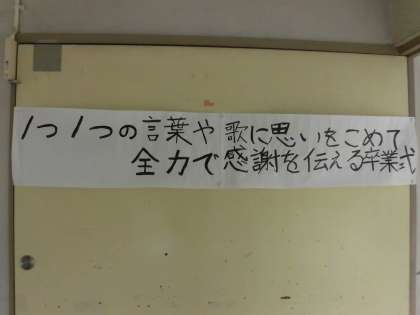 1つ1つの言葉や歌に思いをこめて
全力で感謝を伝える卒業式